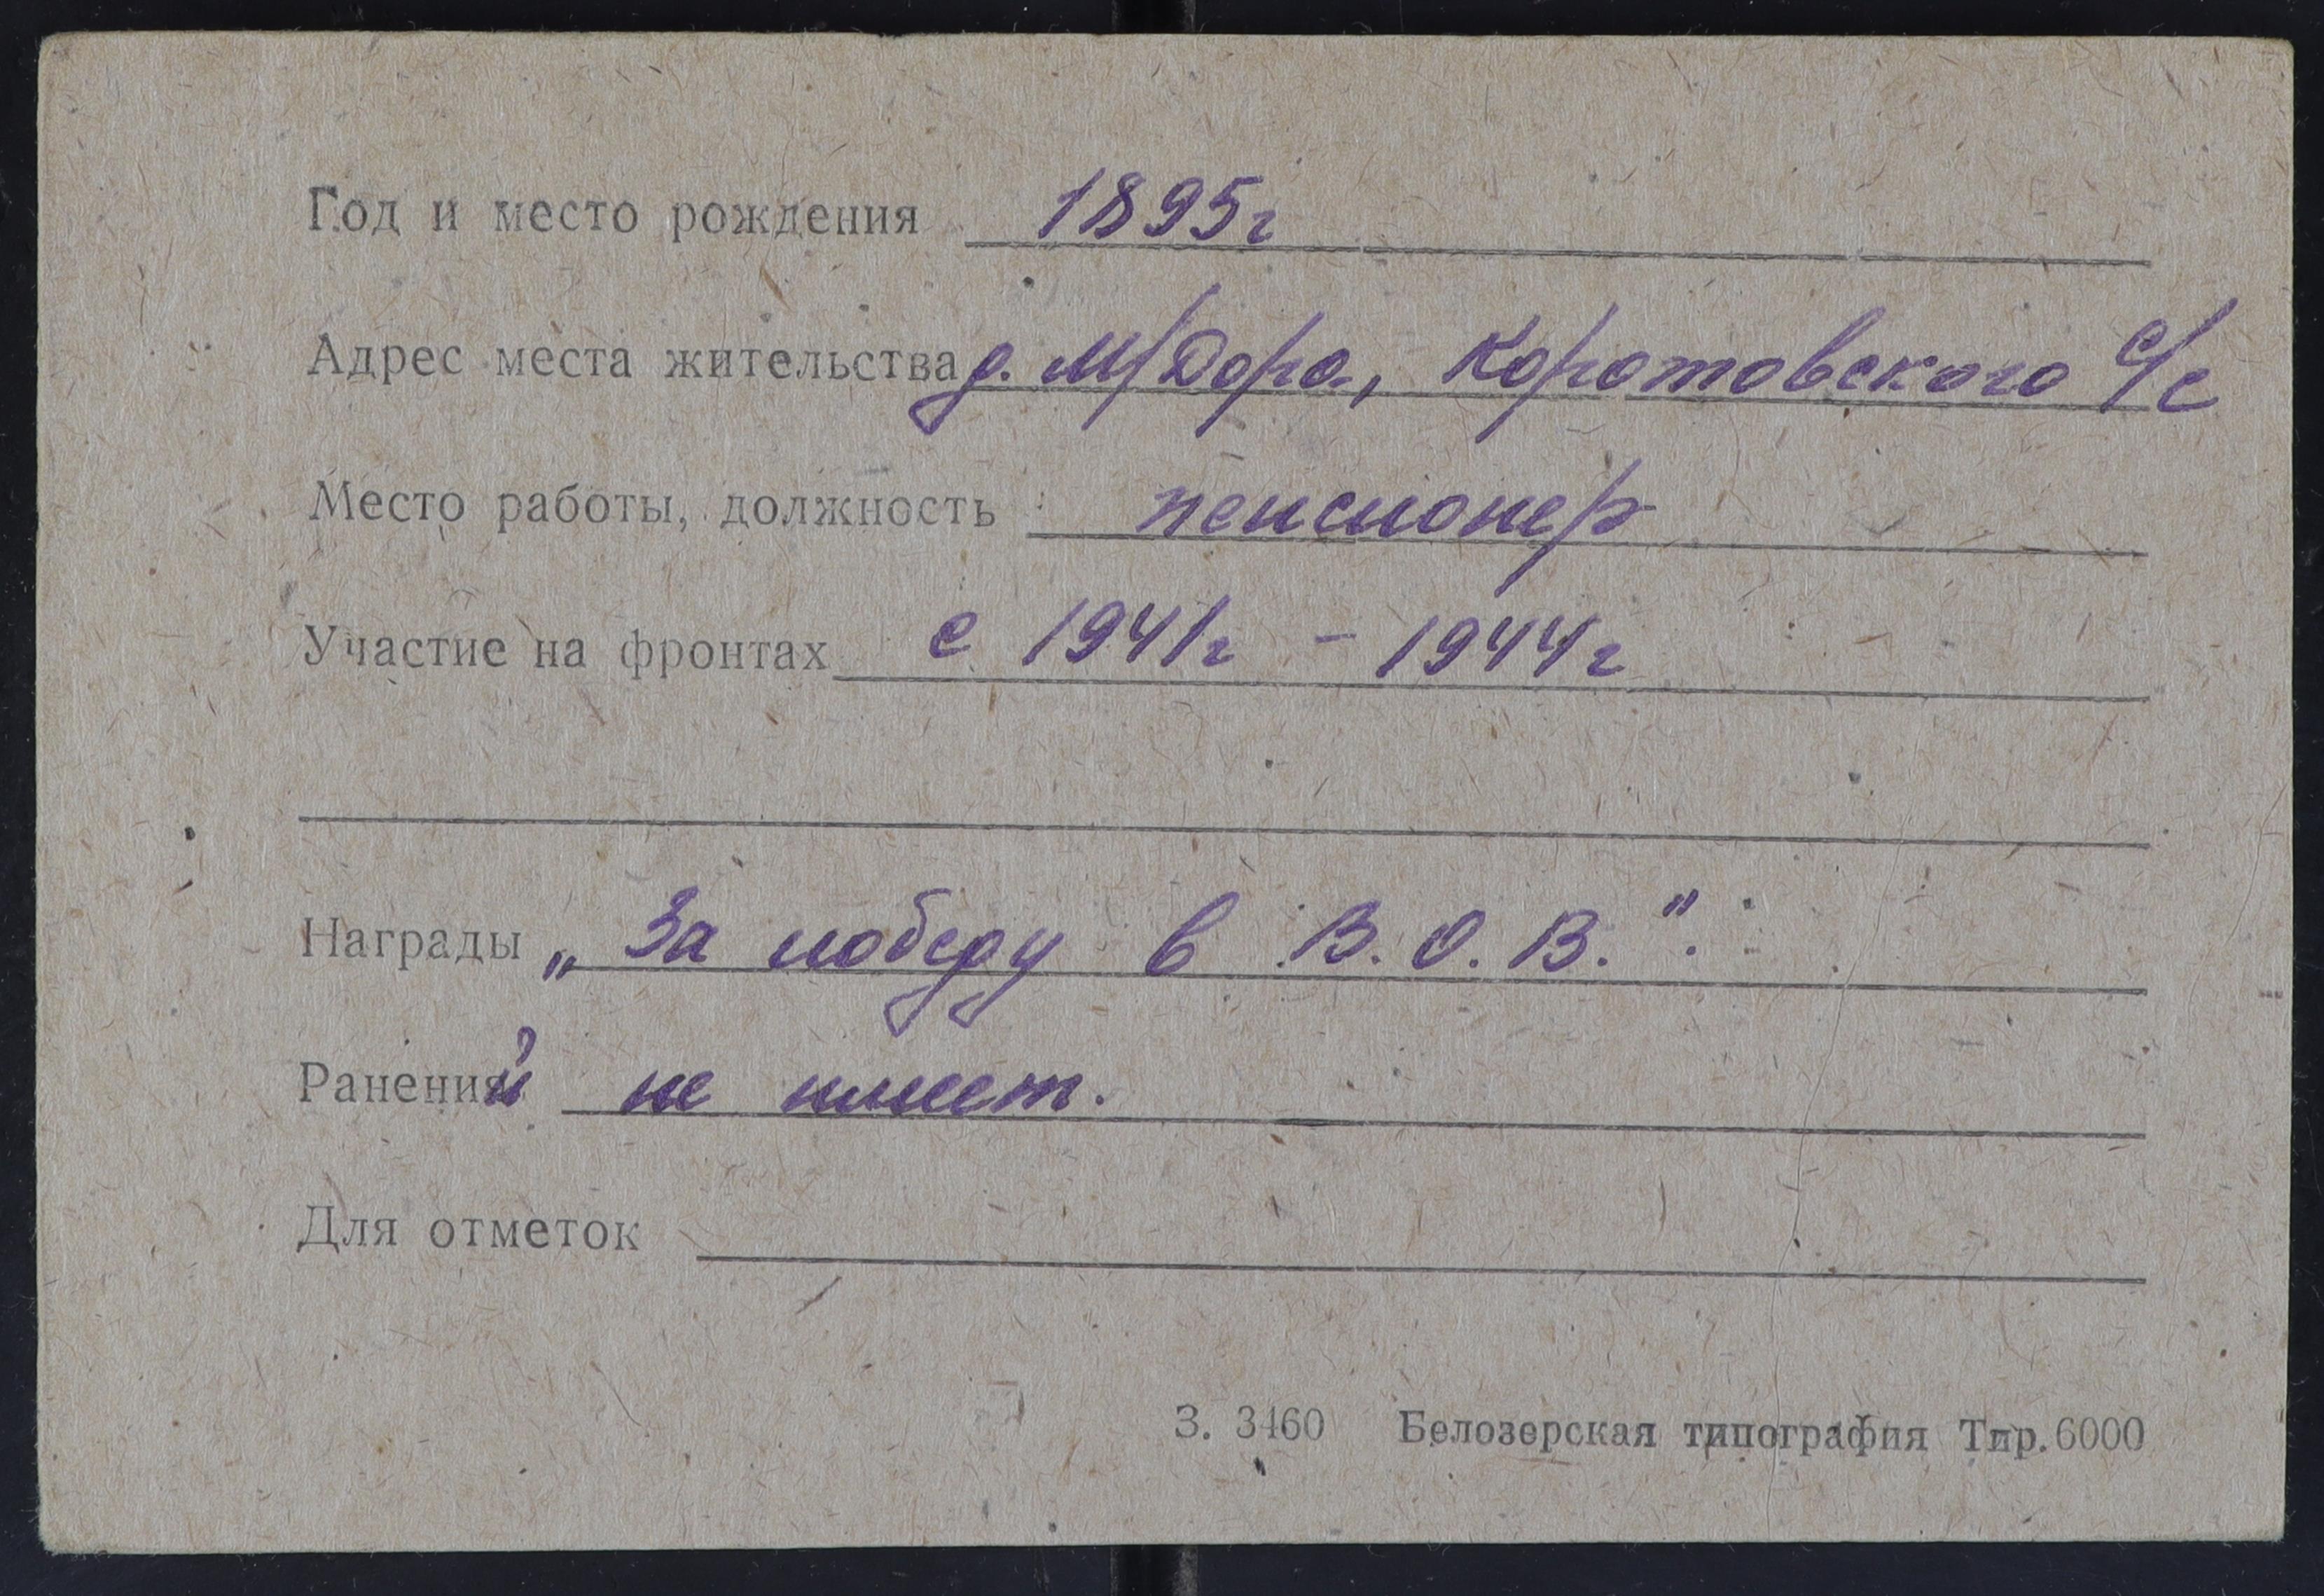 Год и место рождения 1895г
Адрес места жительства д. М/Дора, Коротовского с/с
Место работы, должность пенсионер
Участие на фронтах с 1941г - 1944г
Награды „За победу в В.О.В.".
Ранений не имеет.
Для отметок
З. 3460 Белозерская типография Тир. 6000